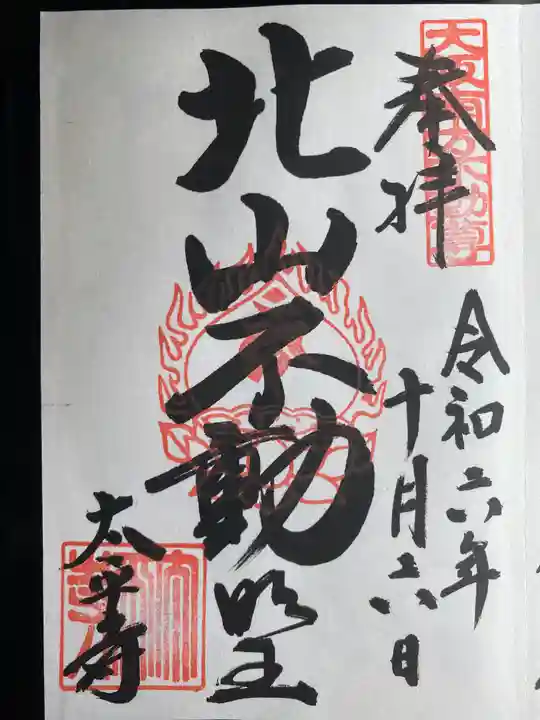 奉拝
令和六年
十月二六日
北山不動明王
太平寺